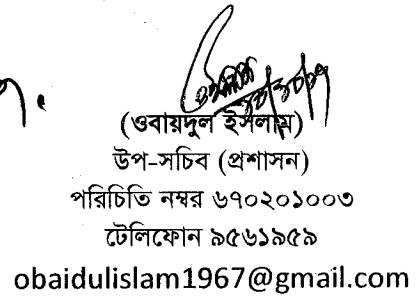 (ওবায়দুল ইসলাম)
উপ-সচিব (প্রশাসন)
পরিচিতি নম্বর ৬৭০২০১০০৩
টেলিফোন ৯৫৬১৯৫৯
obaidulislam1967@gmail.com